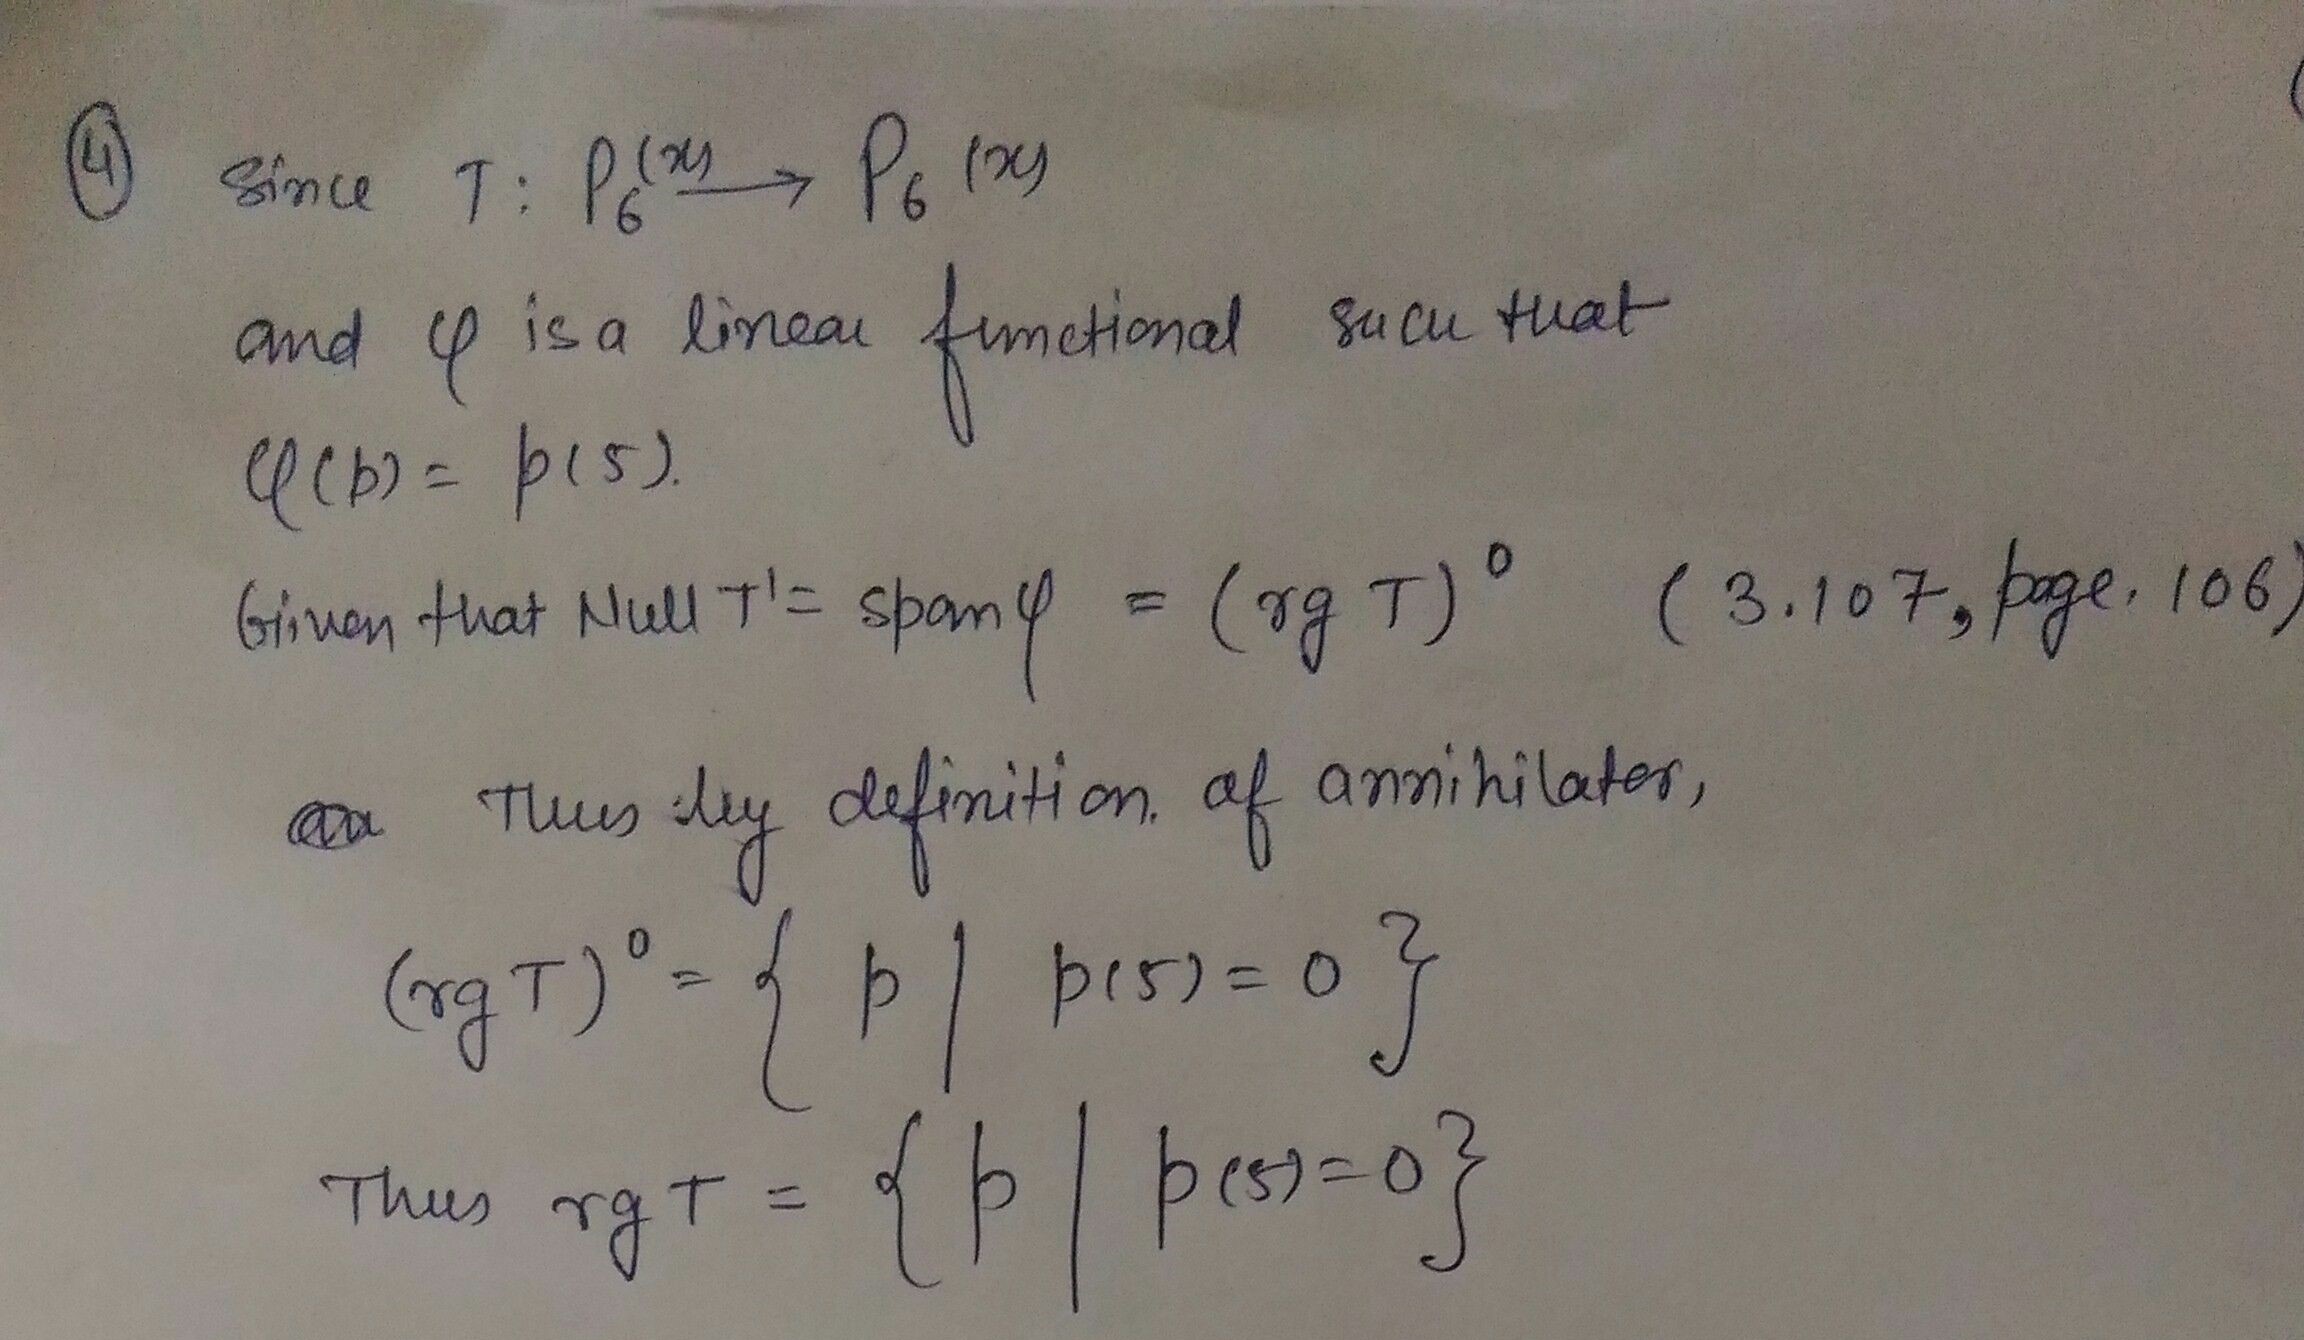 ④ Since T: P₆(x) → P₆(x)
and φ is a linear functional such that
φ(p) = p(5).
Given that Null T' = span φ = (rg T)⁰ (3.107, page. 106)
Thus by definition. of annihilator,
(rg T)⁰ = { p | p(5) = 0 }
Thus rg T = { p | p(5) = 0 }